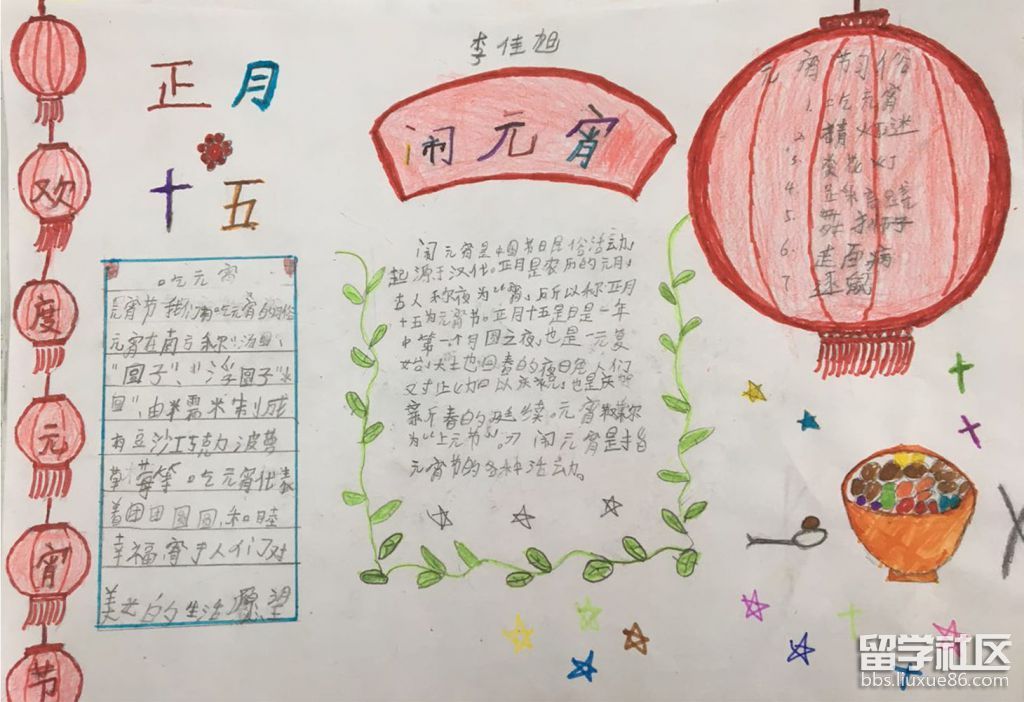 欢
度
元
宵
节
正月
十五
李佳旭
闹元宵
吃元宵
元宵节我们有吃元宵的习俗
元宵在南方称"汤圆"、
"圆子"、"浮圆子"水
圆",由半需米制成
有豆沙巧克力菠萝
草莓等。吃元宵代表
着团团圆圆,和睦
幸福,寄于人们对
美好的生活愿望
闹元宵是中国节日民俗活动,
起源于汉代。正月是农历的元月,
古人称夜为"宵,所以称正月
十五为元宵节。正月十五是日是一年
中第一个月圆之夜,也是一元复
始,大土也回春的夜日
以庆祝,也是庆
新春的延续。元宵
为"上元节"。闹元宵是指
元宵节的各种活动。
元宵节习俗
1.吃元宵
2.猜灯迷
3.花灯
4.
5.
6.走百病
7.逐鼠
留学社区
bbs.liuxue86.com